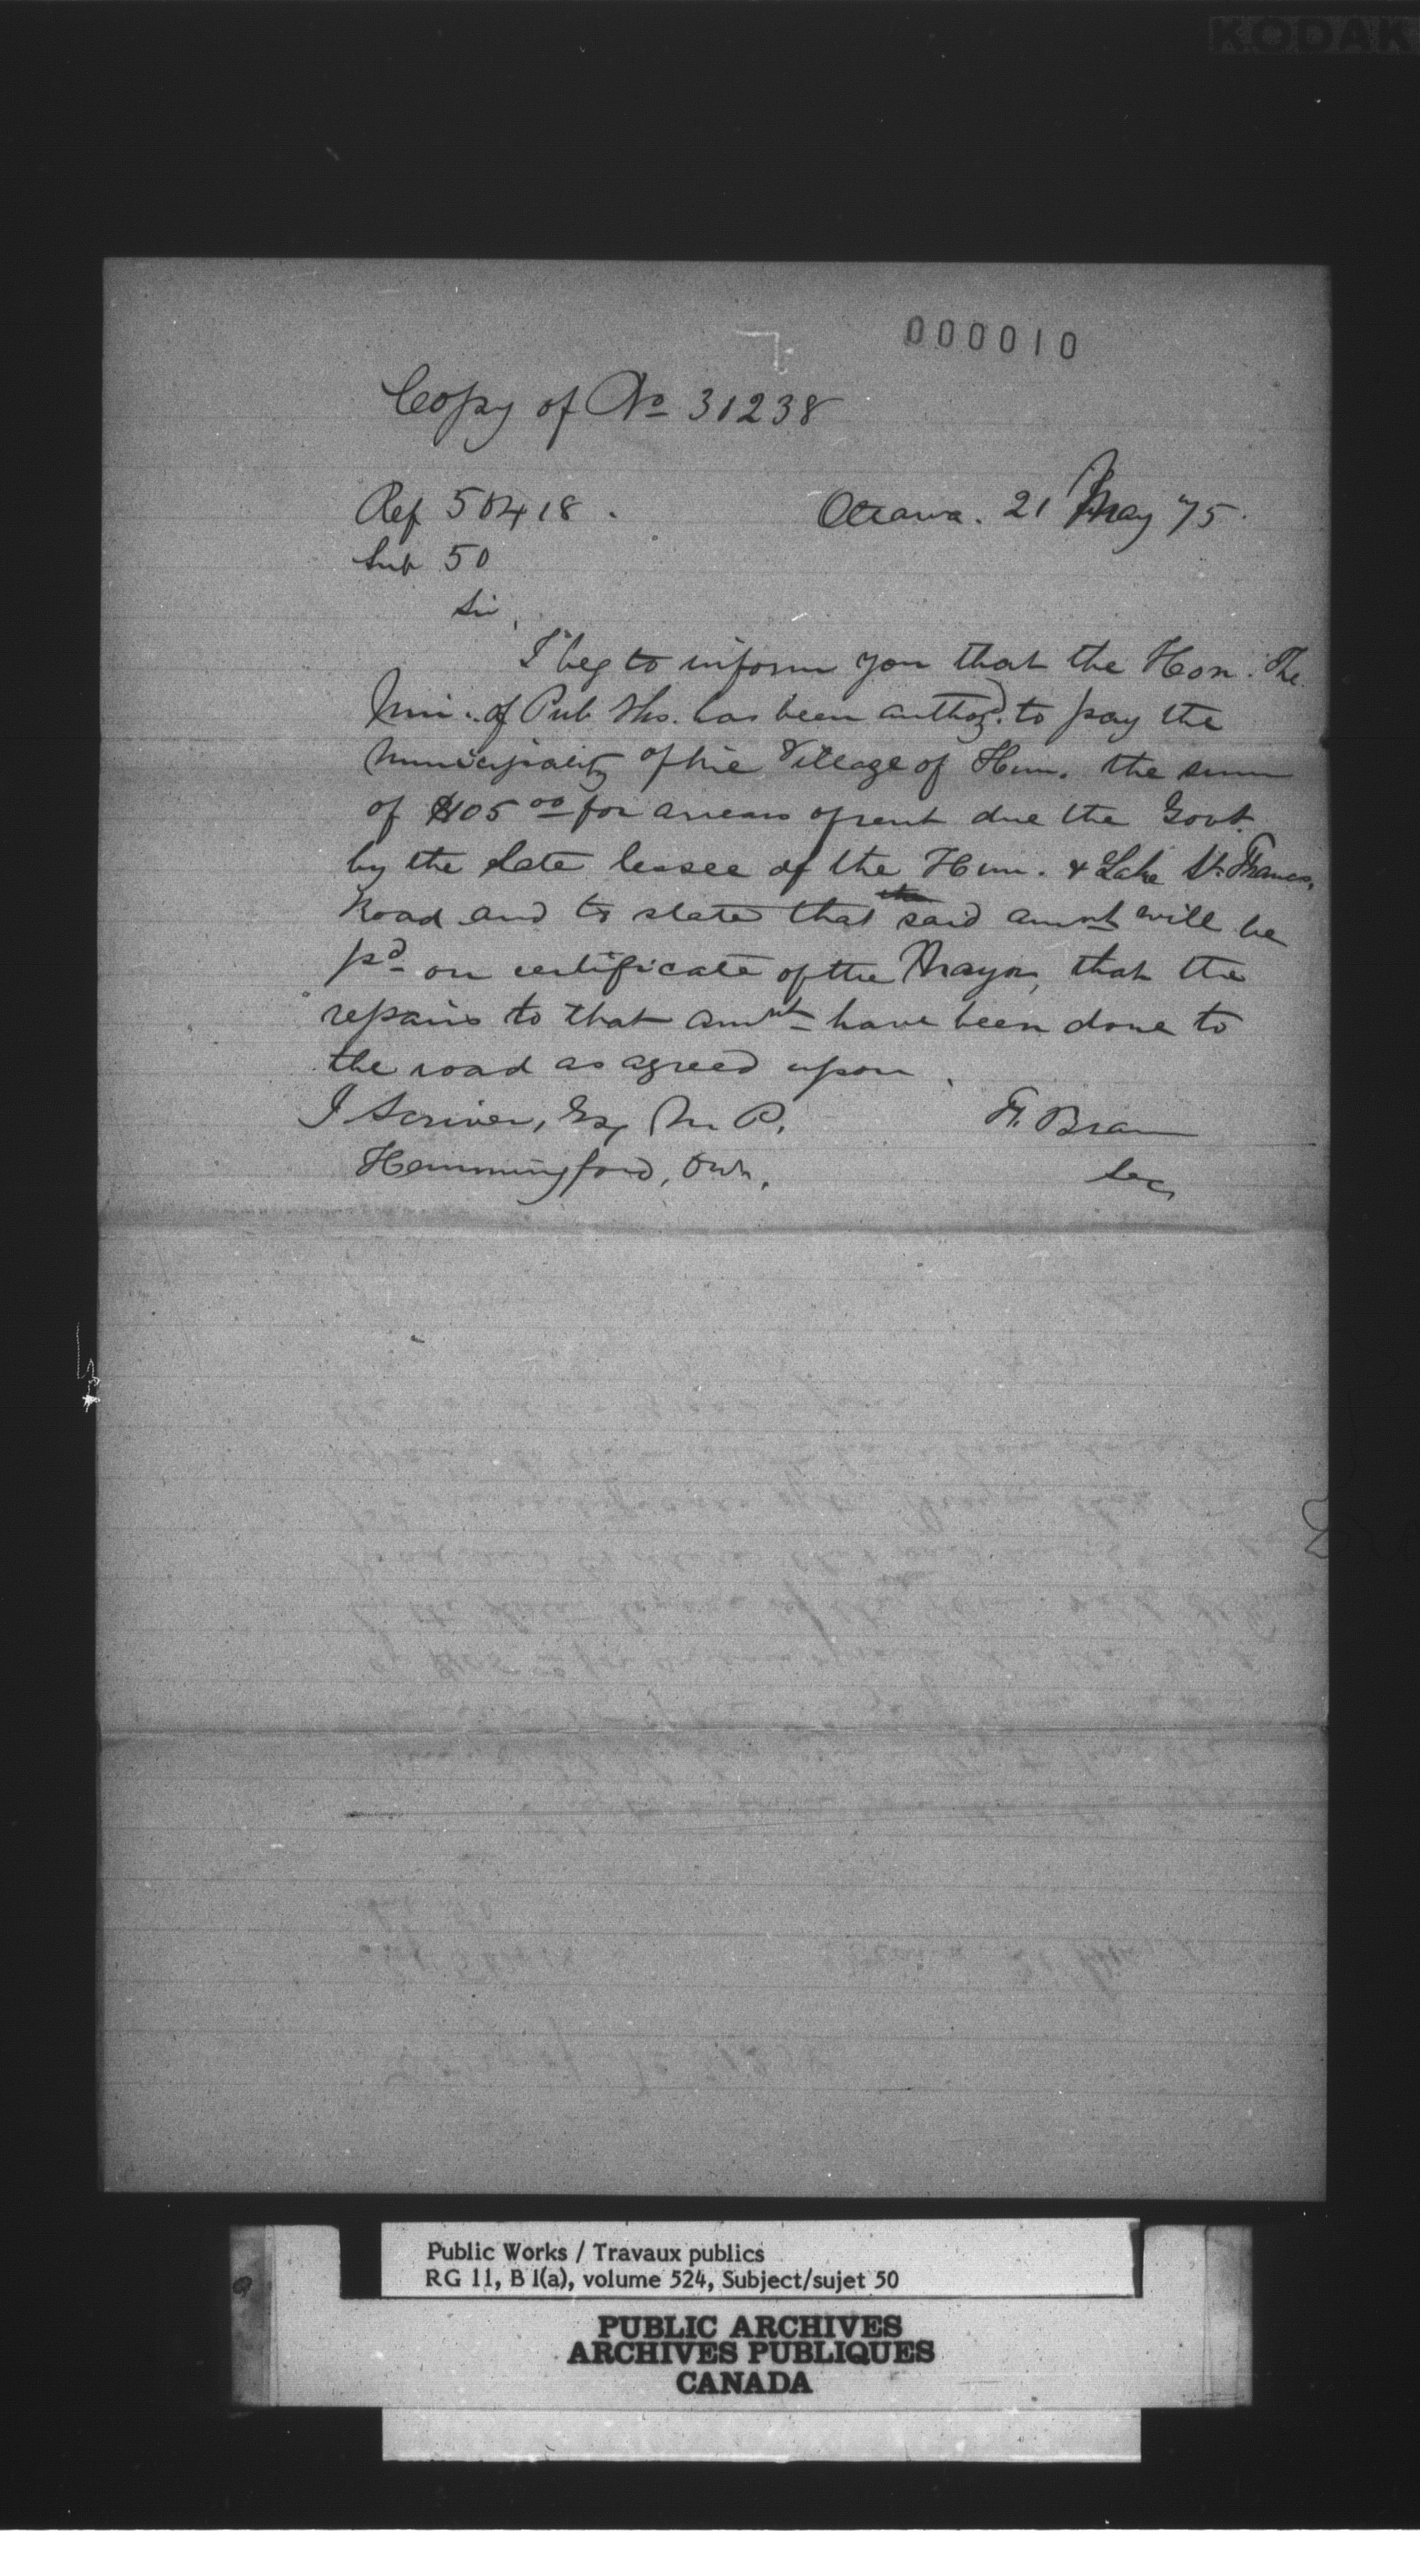 KODAK
000010
Copy of No 31238
Ref 50418. Ottawa. 21 May 75.
Sub 50
Sir,
I beg to inform you that the Hon. The
Min. of Pub. Wks. has been authozd. to pay the
Municipality of the Village of Hun. the sum
of $105 00 for arrears of rent due the Govt.
by the late lessee of the Hun. & Lake St. Francs.
Road and to state that the said amnt will be
pd on certificate of the Mayor, that the
repairs to that amnt have been done to
the road as agreed upon.
J Scriver, Esq M. P. F. Braun
Hemmingford, Sec
Public Works / Travaux publics
RG 11, B 1(a), volume 524, Subject/sujet 50
PUBLIC ARCHIVES
ARCHIVES PUBLIQUES
CANADA